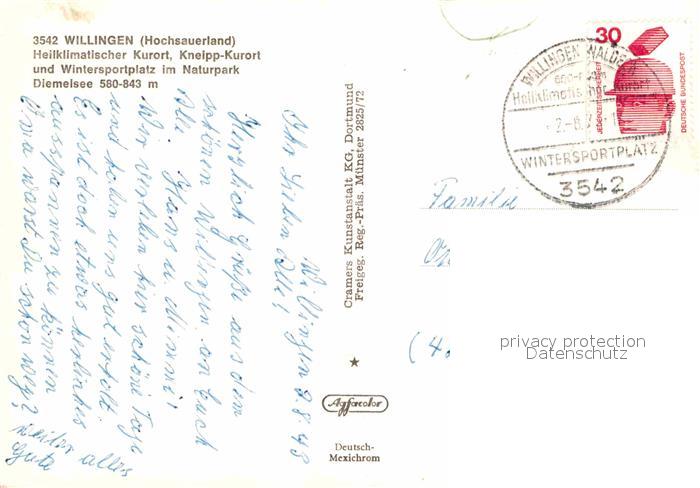 3542 WILLINGEN (Hochsauerland)
Heilklimatischer Kurort, Kneipp-Kurort
und Wintersportplatz im Naturpark
Diemelsee 580-843 m
Willingen 2.8.73
Ihr lieben Alle!
Herzlich Grüße aus dem
schönen Willingen an Euch
Alle. Hans u. Mimmi!
Wir verleben hier schöne Tage
und haben uns gut erholt.
Es ist doch etwas herrliches
ausspannen zu können
Erna warst Du schon weg?
weiter alles
Gute
Cramers Kunstanstalt KG, Dortmund
Freigeg. Reg.-Präs. Münster 2825/72
Agfacolor
Deutsch-
Mexichrom
WILLINGEN WALDECK
Heilklimatischer Kurort
WINTERSPORTPLATZ
3542
30
JEDERZEIT SICHERHEIT
DEUTSCHE BUNDESPOST
Familie
(4.
privacy protection
Datenschutz